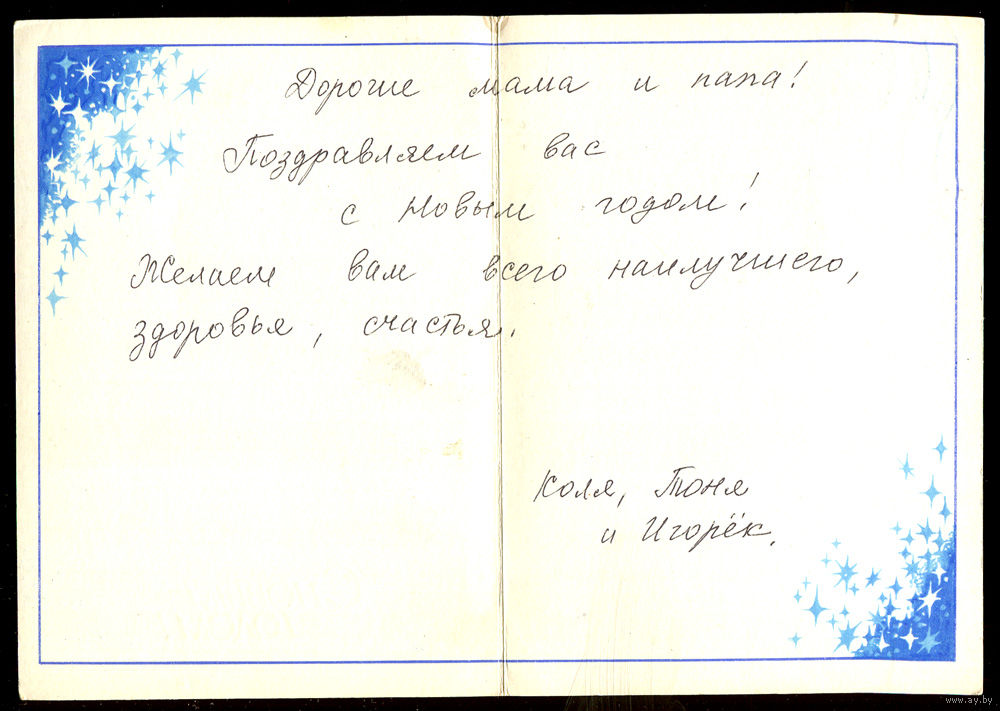 Дорогие мама и папа!
Поздравляем вас
с Новым годом!
Желаем вам всего наилучшего,
здоровья, счастья.
Коля, Тоня
и Игорёк.
www.ay.by